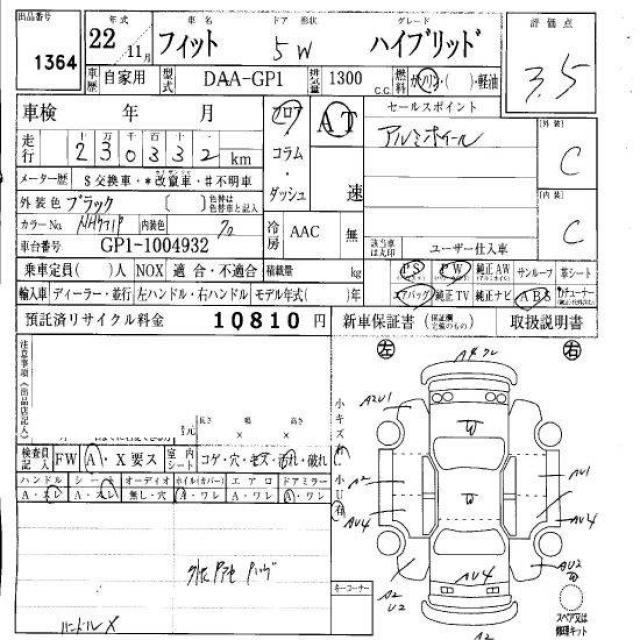 出品番号 1364
年式 22 年 11月
車名 フィット
ドア 形状 5W
グレード ハイブリッド
評価点 3.5
車歴 自家用 型式 DAA-GP1 排気量 1300 c.c. 燃料 ガソリン・( )・軽油
車検 年 月
フロア コラム・ダッシュ
AT 速
セールスポイント
アルミホイール
外装 C
走行 十万 万 千 百 十 一
230332 km
メーター歴 $交換車・*改竄車・#不明車
外装色 ブラック ( ) 色替は色替車と記入
内装 C
カラーNo. 内装色
冷房 AAC 無
車台番号 GP1-1004932
該当車は丸印 ユーザー仕入車
乗車定員( )人 NOX 適合・不適合 積載量 kg
PS PW 純正AW サンルーフ 革シート
輸入車 ディーラー・並行 左ハンドル・右ハンドル モデル年式( )年
エアバッグ 純正TV 純正ナビ ABS
預託済リサイクル料金 10810 円
新車保証書 (保証欄完備のもの) 取扱説明書
左 右
注意事項(出品店記入)
長さ 幅 高さ
× ×
小キズ 小U 有
検査員記入 FW A・X要ス 室内シート コゲ・穴・キズ・汚れ・破れ
ハンドル シート オーディオ ホイル(カバー) エアロ ドアミラー
A・スレ A・スレ 無し・穴 A・ワレ A・ワレ A・ワレ
ハンドル X
キーコーナー
A2U1
W
A2
AU1
W
AU4
AU4
AU2
AU4
A2
U2
A2
スペア又は修理キット